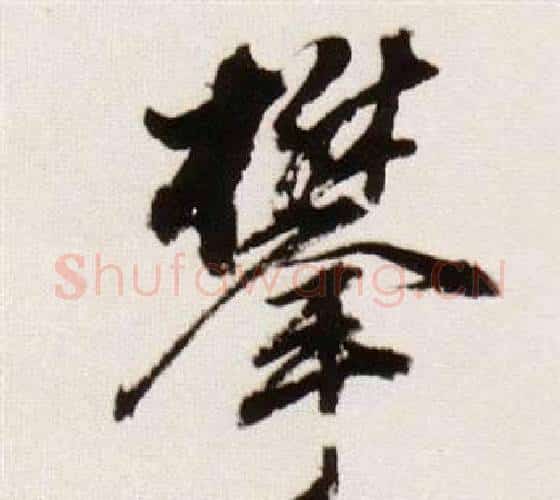 攀
Shufawang.CN